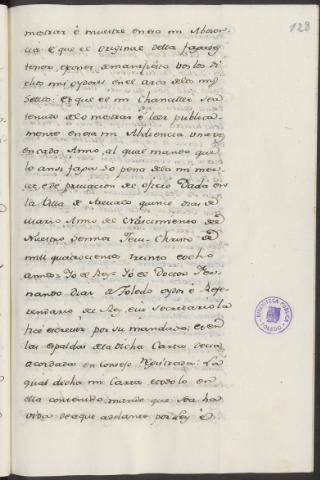 128
mostrar è muestre en esa mi Abdien-
cia è que el Original della fagays
tener è poner
oidores en el arca del mi
Sello: è que el mi Chanciller sea
tenudo de lo mostrar è leer publica-
mente en esa mi Abdiencia una vez
en cada Anno, al qual mando que
lo ansi faga so pena de la mi mer-
zet è de privacion de oficio Dada en
la Villa de Arevalo quince dias de
Marzo Anno del Nascimiento del
Nuestro Sennor Jesu-Christo de
mil quatrocientos treinta è ocho
annos = Yo el Rey = Yo el Doctor Fer-
nando Diaz de Toledo oydor è Refe-
rendario del Rey, è su Secretario la
fice escreuir por su mandado; è en
las espaldas de la dicha Carta decia
acordada en Consejo Registrada: La
qual dicha mi Carta è todo lo en
ella contenido mande que sea ha
vida de aqui adelante por Ley è
BIBLIOTECA PUBLICA
TOLEDO